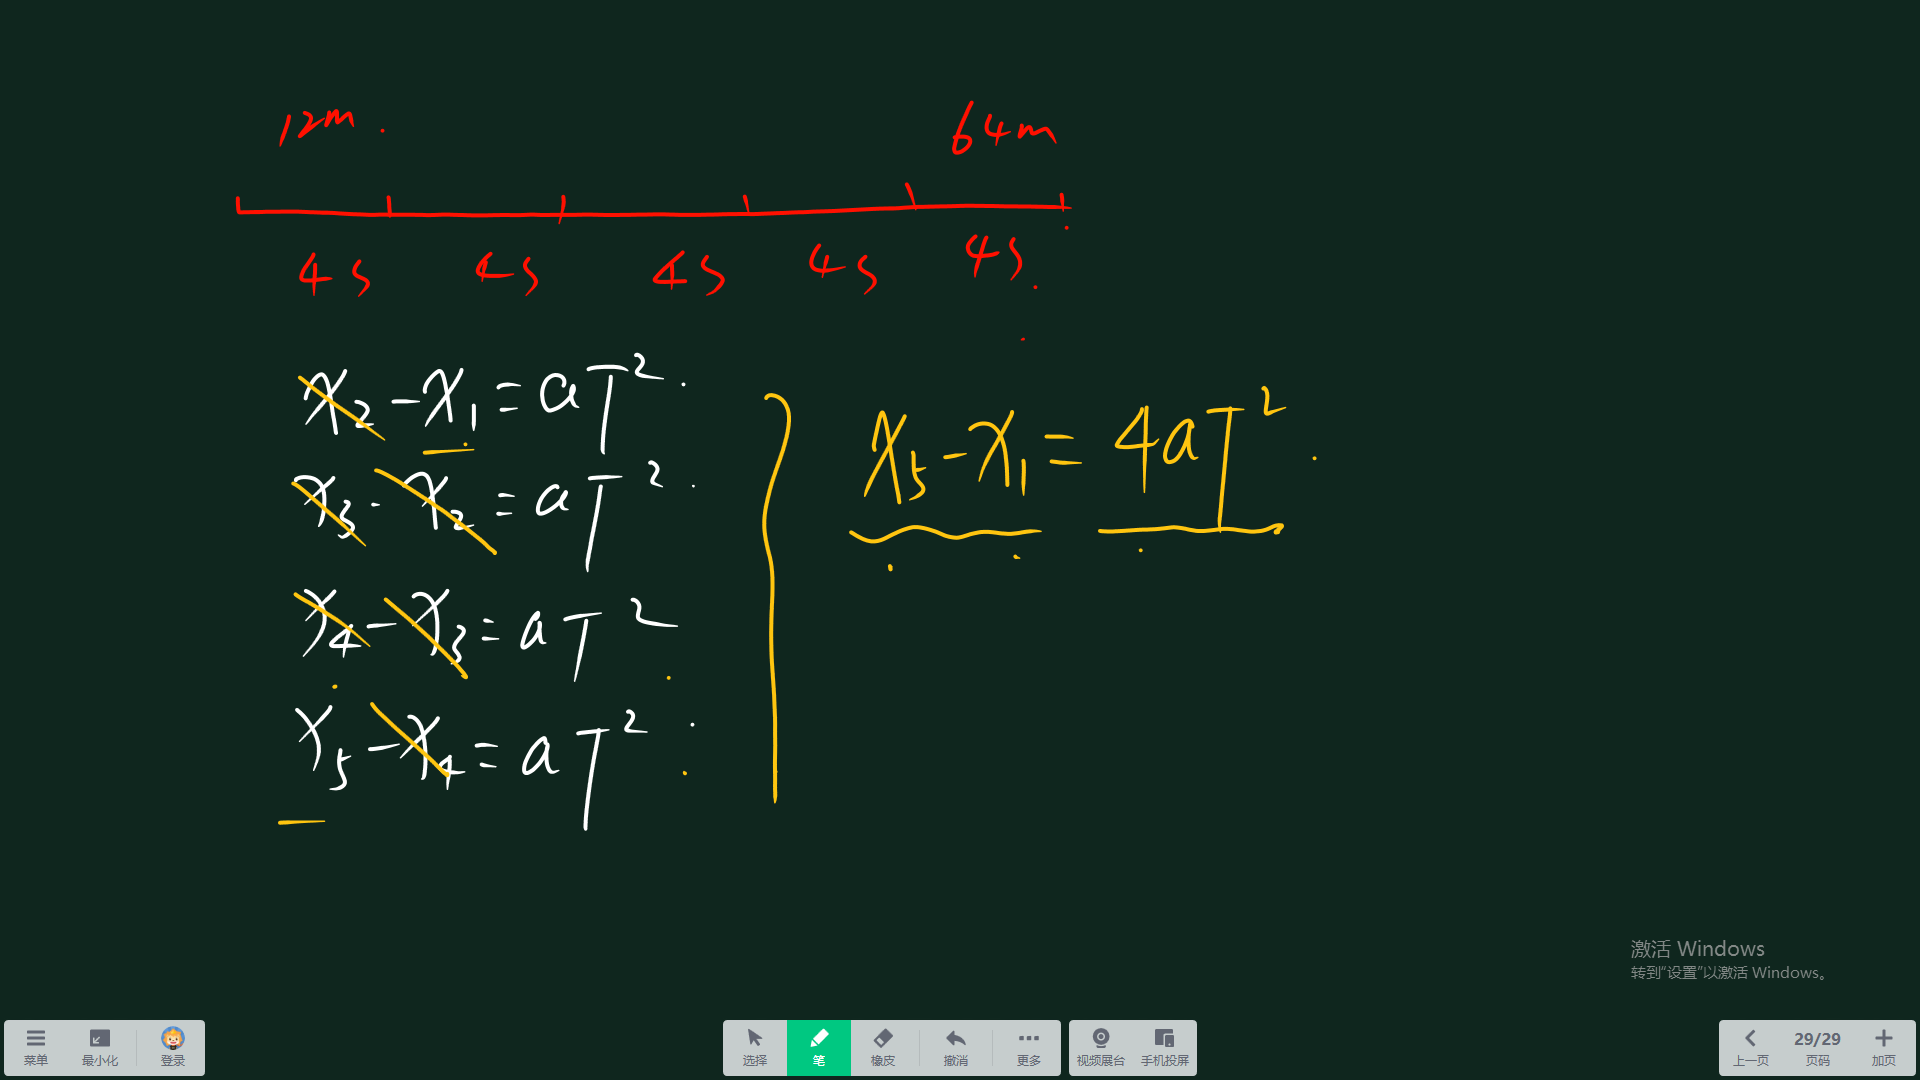 12m.
64m
4s 4s 4s 4s 4s.
x₂-x₁=aT².
x₃-x₂=aT².
x₄-x₃=aT²
x₅-x₄=aT²
x₅-x₁=4aT².
激活 Windows
转到“设置”以激活 Windows。
菜单 最小化 登录
选择 笔 橡皮 撤消 更多
视频展台 手机投屏
29/29
上一页 页码 加页